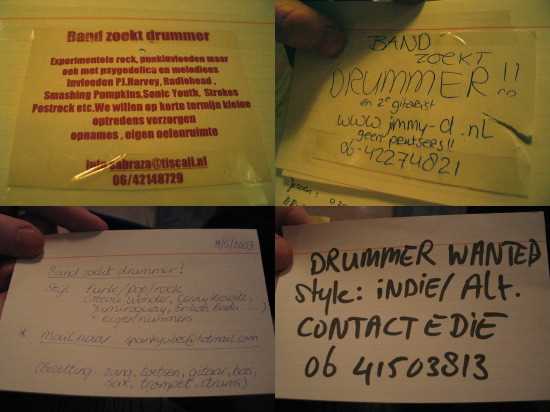 Band zoekt drummer
Experimentele rock, punkinvloeden maar
ook met psygedelica en melodieus
Invloeden PJ.Harvey, Radiohead ,
Smashing Pumpkins,Sonic Youth, Strokes
Postrock etc.We willen op korte termijn kleine
optredens verzorgen
opnames , eigen oefenruimte
info.sabraza@tiscali.nl
06/42148729
BAND
ZOEKT
DRUMMER!!
en 2e gitarist
www.jimmy-d.nl
geen prutsers!!
06-42274821
Band zoekt drummer!
Style funk/pop/rock
(Stevie Wonder, Lenny Kravitz,
Jamiroquai,
eigen nummers
* Mail naar
(Bezetting zang, toetsen, gitaar, bas,
sax, trompet, drums)
DRUMMER WANTED
Style: INDIE/ Alt.
CONTACT EDIE
06 41503813